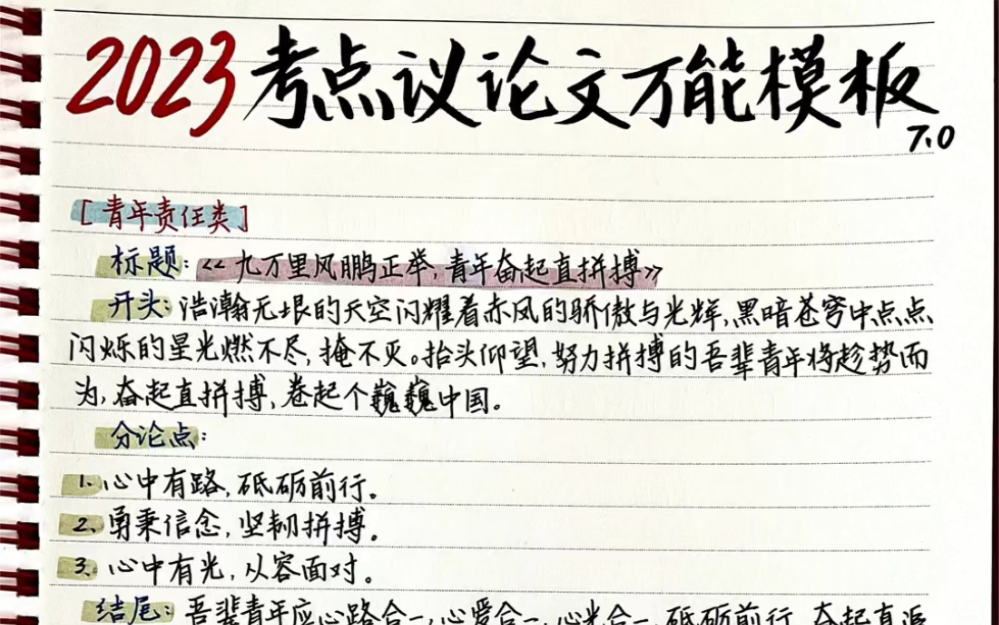 2023考点议论文万能模板
7.0
[青年责任类]
标题:《九万里风鹏正举,青年奋起直拼搏》
开头:浩瀚无垠的天空闪耀着赤凤的骄傲与光辉,黑暗苍穹中点点
闪烁的星光燃不尽,掩不灭。抬头仰望,努力拼搏的吾辈青年将趁势而
为,奋起直拼搏,卷起个巍巍中国。
分论点:
1.心中有路,砥砺前行。
2.勇秉信念,坚韧拼搏。
3.心中有光,从容面对。
结尾:吾辈青年应心路合一,心爱合一,心光合一,砥砺前行,奋起直追